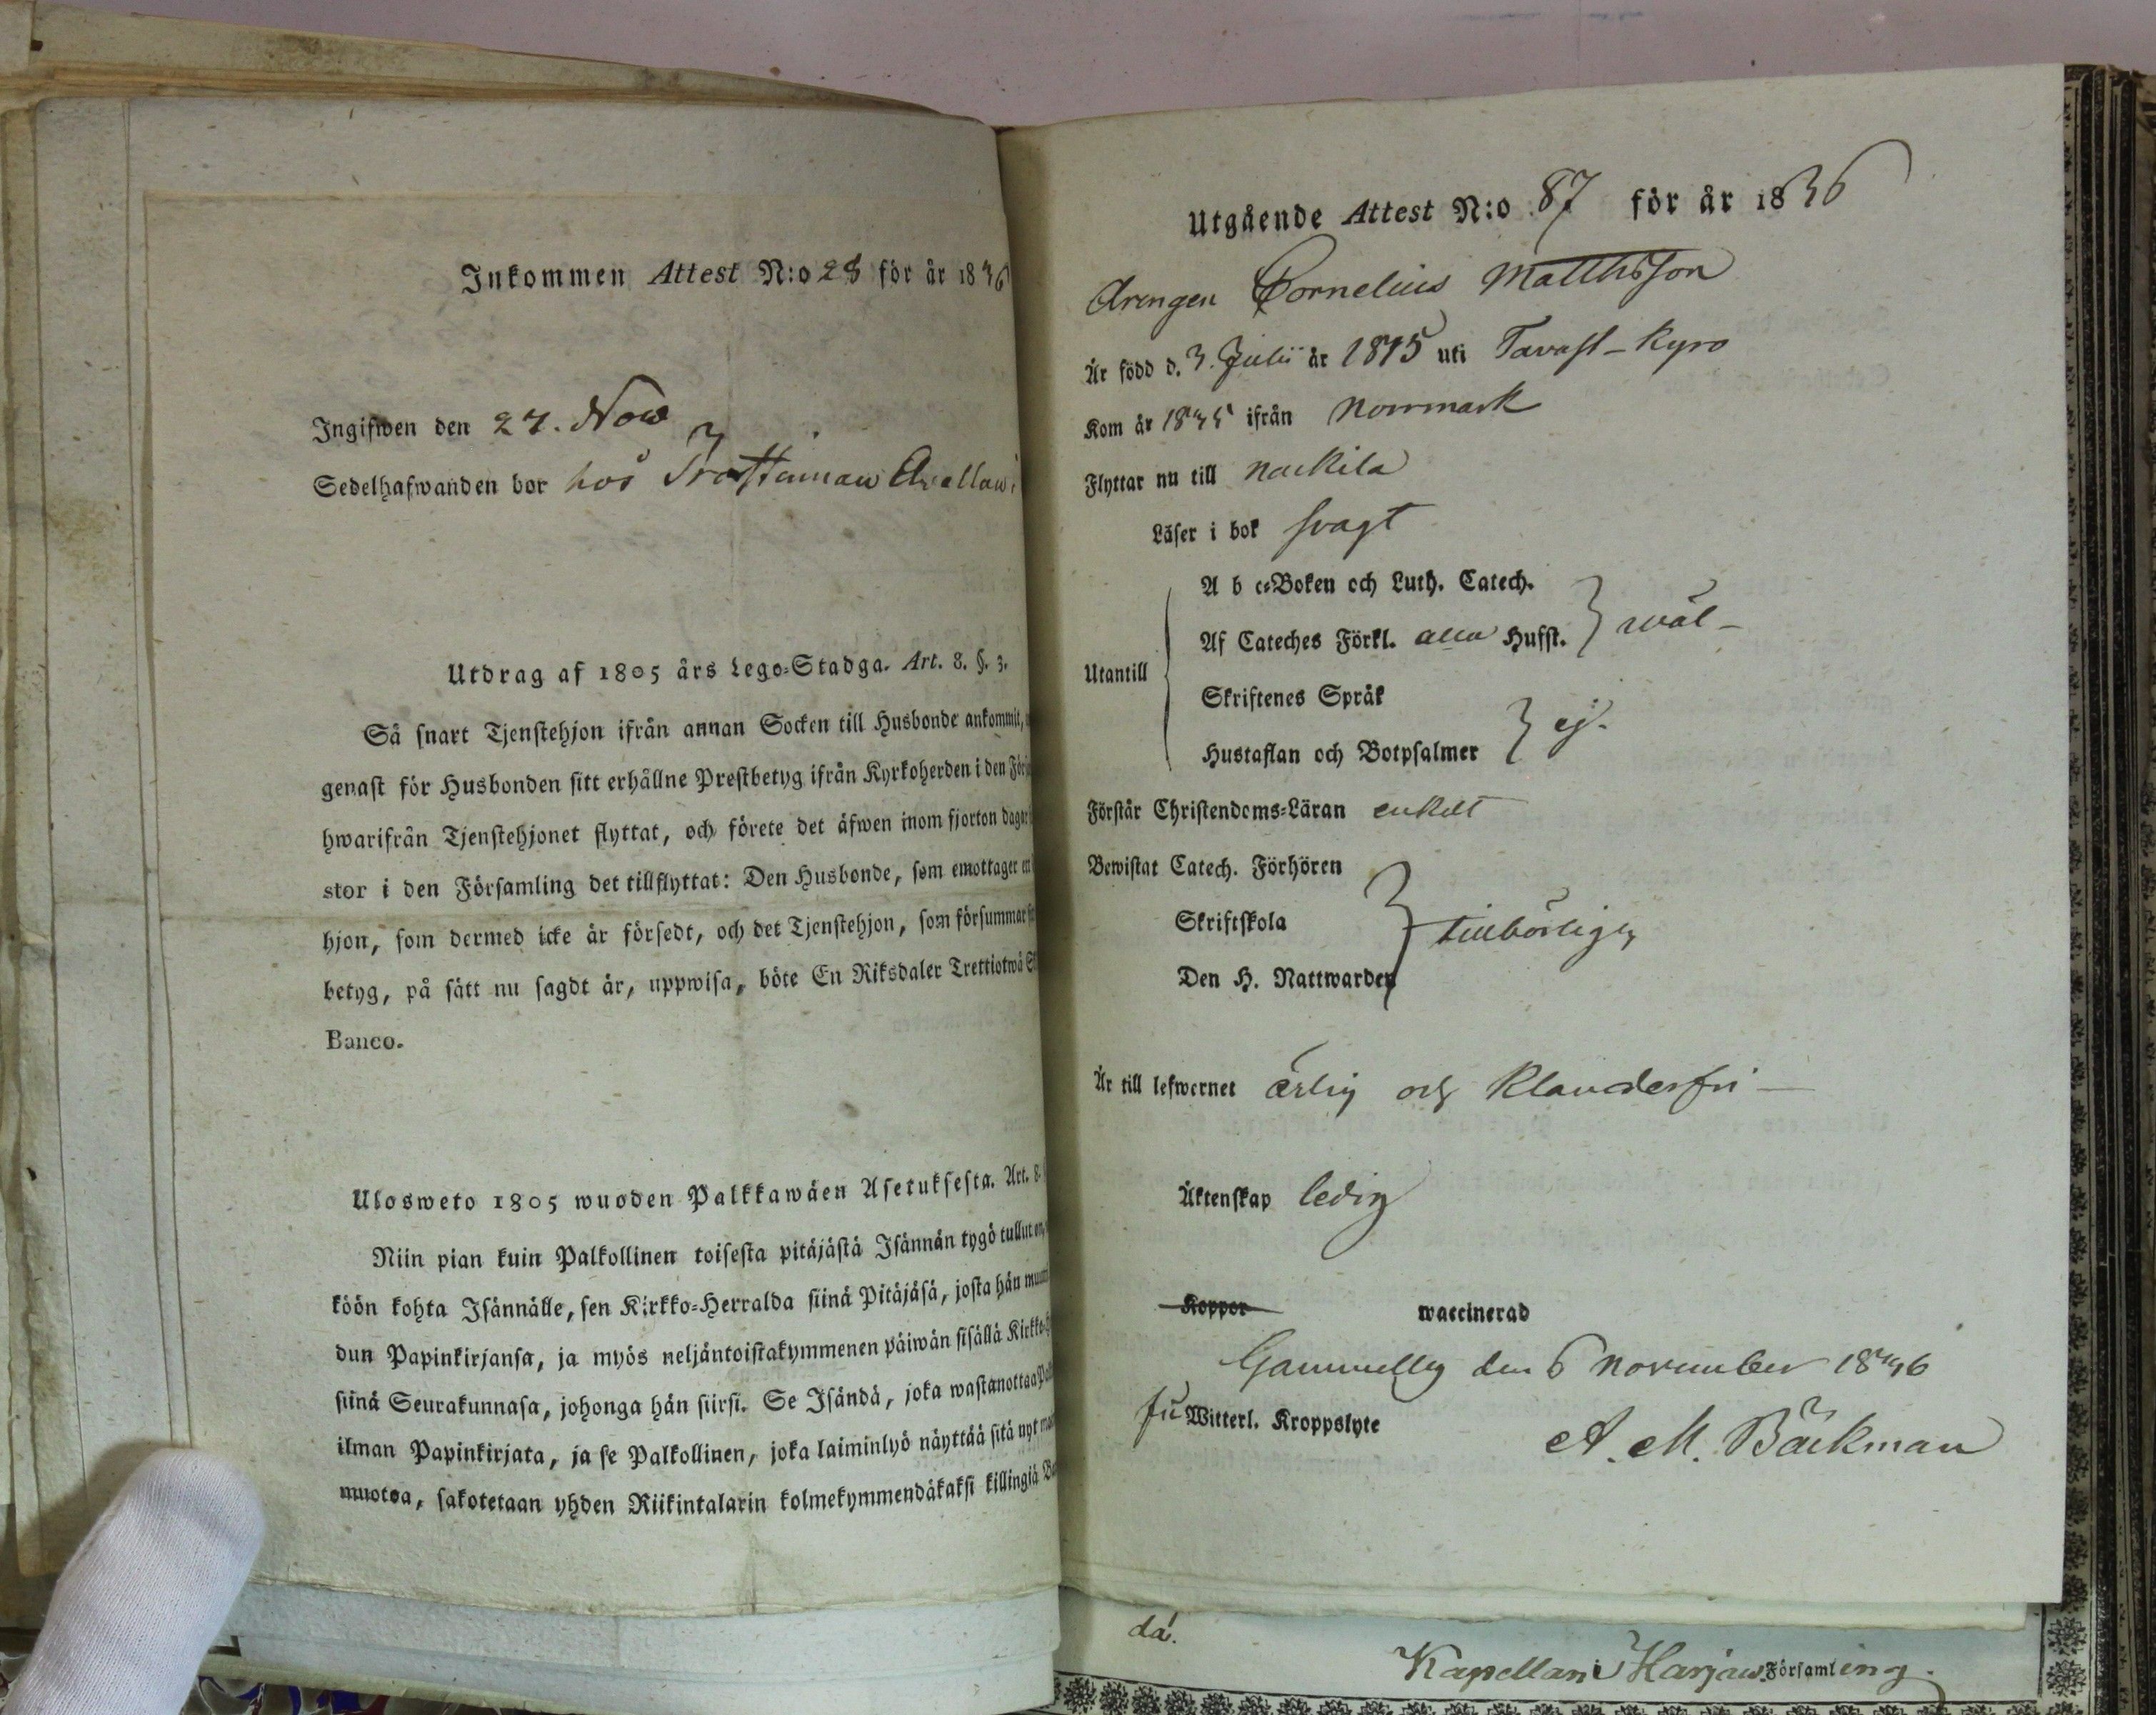 Inkommen Attest N:o 28 för år 1836
Ingifwen den 27. Nov
Sedelhafwanden bor hos
Utdrag af 1805 års Lego-Stadga. Art. 8. §. 3.
Så snart Tjenstehjon ifrån annan Socken till Husbonde ankommit,
genast för Husbonden sitt erhållne Prestbetyg ifrån Kyrkoherden i den
hwarifrån Tjenstehjonet flyttat, och förete det äfwen inom fjorton dagar
stor i den Församling det tillflyttat: Den Husbonde, som emottager
hjon, som dermed icke är försedt, och det Tjenstehjon, som försummar
betyg, på sätt nu sagdt är, uppwisa, böte En Riksdaler Trettiotwå
Banco.
Ulosweto 1805 wuoden Palkkawäen Asetuksesta. Art. 8.
Niin pian kuin Palkollinen toisesta pitäjästä Isännän tygö tullut on,
köön kohta Isännälle, sen Kirkko-Herralda siinä Pitäjäsä, josta hän
dun Papinkirjansa, ja myös neljäntoistakymmenen päiwän sisällä
siinä Seurakunnasa, johonga hän siirsi. Se Isändä, joka wastanottaa
ilman Papinkirjata, ja se Palkollinen, joka laiminlyö näyttää sitä nyt
muotoa, sakotetaan yhden Riikintalarin kolmekymmendäkaksi killingiä
Utgående Attest N:o 87 för år 1836
Drengen Cornelius Matthsson
Är född d. 3. Julii år 1815 uti Tavast-Kyro
Kom år 1835 ifrån Norrmark
Flyttar nu till Nackila
Läser i bok svagt
A b c-Boken och Luth. Catech.
Af Cateches Förkl. alla Husst. } wäl-
Utantill
Skriftenes Språk
Hustaflan och Botpsalmer } ej.
Förstår Christendoms-Läran enkelt
Bewistat Catech. Förhören
Skriftskola } tillbörligen
Den H. Nattwarden
Är till lefwernet ärlig och klanderfri -
Äktenskap ledig
Koppor waccinerad
Gammelby den 6 November 1836
Witterl. Kroppslyte
A. M. Bäckman
da.
Kapellan i Harjav. Församling.